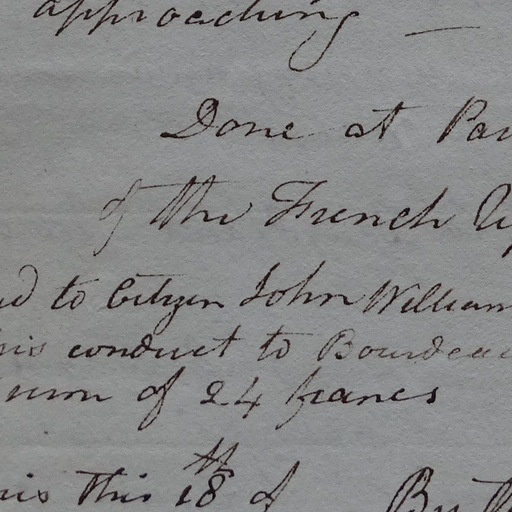 approaching —
Done at Par
of the French
to Citizen John William
his conduct to Bourdeau
sum of 24 francs
this 18th of By